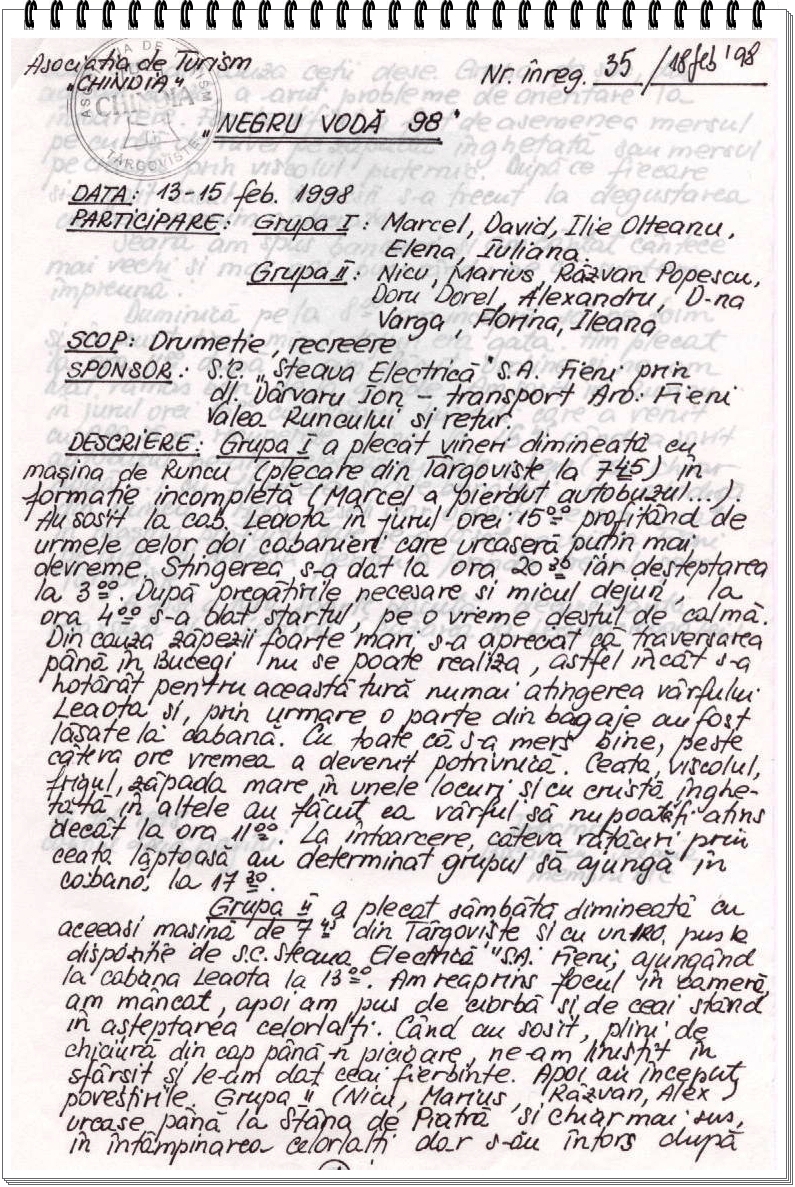 Asociatia de Turism
„CHINDIA"
Nr. înreg. 35 / 18 feb '98
ASOCIAȚIA DE TURISM CHINDIA TÂRGOVIȘTE
„NEGRU VODĂ 98"
DATA: 13-15 feb. 1998
PARTICIPARE: Grupa I: Marcel, David, Ilie Olteanu,
Elena, Iuliana.
Grupa II: Nicu, Marius, Răzvan Popescu,
Doru Dorel, Alexandru, D-na
Varga, Florina, Ileana
SCOP: Drumeție, recreere
SPONSOR.: S.C. „Steaua Electrică" S.A. Fieni prin
dl. Dârvaru Ion – transport Aro: Fieni
Valea Runcului si retur.
DESCRIERE: Grupa I a plecat vineri dimineată cu
mașina de Runcu (plecare din Târgoviste la 7 45) în
formație incompletă (Marcel a pierdut autobuzul...).
Au sosit la cab. Leaota în jurul orei 15 oo profitând de
urmele celor doi cabanieri care urcaseră puțin mai
devreme. Stingerea s-a dat la ora 20 30 iar deșteptarea
la 3 oo. După pregătirile necesare si micul dejun, la
ora 4 oo s-a blat startul, pe o vreme destul de calmă.
Din cauza zăpezii foarte mari s-a apreciat că traversarea
până în Bucegi nu se poate realiza, astfel încât s-a
hotărât pentru această tură numai atingerea vârfului
Leaota si, prin urmare o parte din bagaje au fost
lăsate la cabană. Cu toate că s-a mers bine, peste
câteva ore vremea a devenit potrivnică. Ceața, viscolul,
frigul, zăpada mare în unele locuri și cu crustă înghe-
tată în altele au făcut ca vârful să nu poată fi atins
decât la ora 11 oo. La întoarcere, câteva rătăciri prin
ceata lăptoasă au determinat grupul să ajungă în
cabană, la 17 30.
Grupa II a plecat sâmbătă dimineată cu
aceeasi masină de 7 45 din Târgoviste si cu un ARO pus la
dispoziție de S.C. Steaua Electrică" S.A. Fieni, ajungând
la cabana Leaota la 13 oo. Am reaprins focul în cameră,
am mâncat, apoi am pus de ciorbă și de ceai stând
în așteptarea celorlalți. Când au sosit, plini de
chiciură din cap până-n picioare, ne-am liniștit în
sfârsit și le-am dat ceai fierbinte. Apoi au început
povestirile. Grupa II (Nicu, Marius, Răzvan, Alex)
urcase până la Stâna de Piatră și chiar mai sus,
în întâmpinarea celorlalți dar s-au întors după